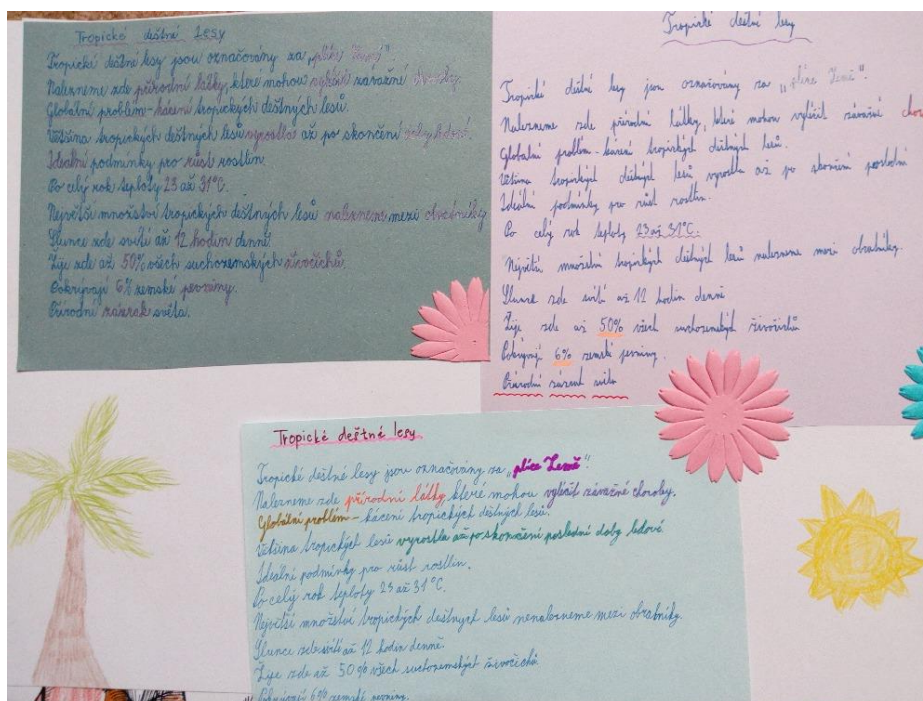 Tropické deštné Lesy
Tropické deštné lesy jsou označovány za „plíce Země“.
Nalezneme zde přírodní látky, které mohou vyléčit závažné choroby.
Globální problém - kácení tropických deštných lesů.
Většina tropických deštných lesů vyrostla až po skončení doby ledové.
Ideální podmínky pro růst rostlin.
Po celý rok teploty 23 až 31°C.
Největší množství tropických deštných lesů nalezneme mezi obratníky
Slunce zde svítí až 12 hodin denně.
Žije zde až 50% všech suchozemských živočichů.
Pokrývají 6% zemské pevniny.
Přírodní zázrak světa.
Tropické deštné lesy
Tropické deštné lesy jsou označovány za „plíce Země“.
Nalezneme zde přírodní látky, které mohou vyléčit závažné
Globální problém - kácení tropických deštných lesů.
Většina tropických deštných lesů vyrostla až po skončení poslední
Ideální podmínky pro růst rostlin.
Po celý rok teploty 23 až 31°C.
Největší množství tropických deštných lesů nalezneme mezi obratníky.
Slunce zde svítí až 12 hodin denně
Žije zde až 50% všech suchozemských živočichů
Pokrývají 6% zemské pevniny.
Přírodní zázrak světa
Tropické deštné lesy
Tropické deštné lesy jsou označovány za „plíce Země“.
Nalezneme zde přírodní látky, které mohou vyléčit závažné choroby.
Globální problém - kácení tropických deštných lesů.
Většina tropických lesů vyrostla až po skončení poslední doby ledové.
Ideální podmínky pro růst rostlin.
Po celý rok teploty 23 až 31°C.
Největší množství tropických deštných lesů nenalezneme mezi obratníky.
Slunce zde svítí až 12 hodin denně.
Žije zde až 50% všech suchozemských živočichů
Pokrývají 6% zemské pevniny.